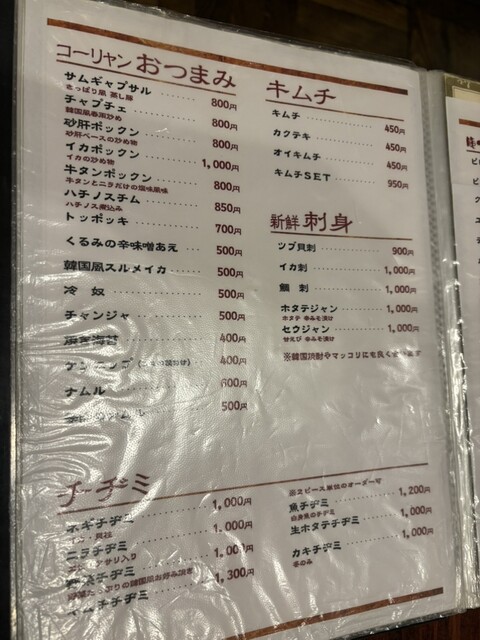 コーリャン おつまみ
サムギャプサル 800円
さっぱり風 蒸し豚
チャプチェ 800円
韓国風春雨炒め
砂肝ポックン 800円
砂肝ベースの炒め物
イカポックン 1,000円
イカの炒め物
牛タンポックン 800円
牛タンとニラだけの塩味風味
ハチノスチム 850円
ハチノス煮込み
トッポッキ 700円
くるみの辛味噌あえ 500円
韓国風スルメイカ 500円
冷 奴 500円
チャンジャ 500円
海苔 400円
ケンニップ 400円
ナムル 600円
500円
キムチ
キムチ 450円
カクテキ 450円
オイキムチ 450円
キムチSET 950円
新鮮 刺身
ツブ貝刺 900円
イカ刺 1,000円
鯛 刺 1,000円
ホタテジャン 1,000円
ホタテ 辛みそ漬け
セウジャン 1,000円
甘えび 辛みそ漬け
※韓国焼酎やマッコリにも良く合います
チーヂミ
ネギチヂミ 1,000円
ニラチヂミ 1,000円
アサリ入り
野菜チヂミ 1,000円
野菜たっぷりの韓国風お好み焼き
キムチチヂミ 1,300円
魚チヂミ 1,200円
白身魚のチヂミ
生ホタテチヂミ 1,000円
カキチヂミ 1,000円
冬のみ